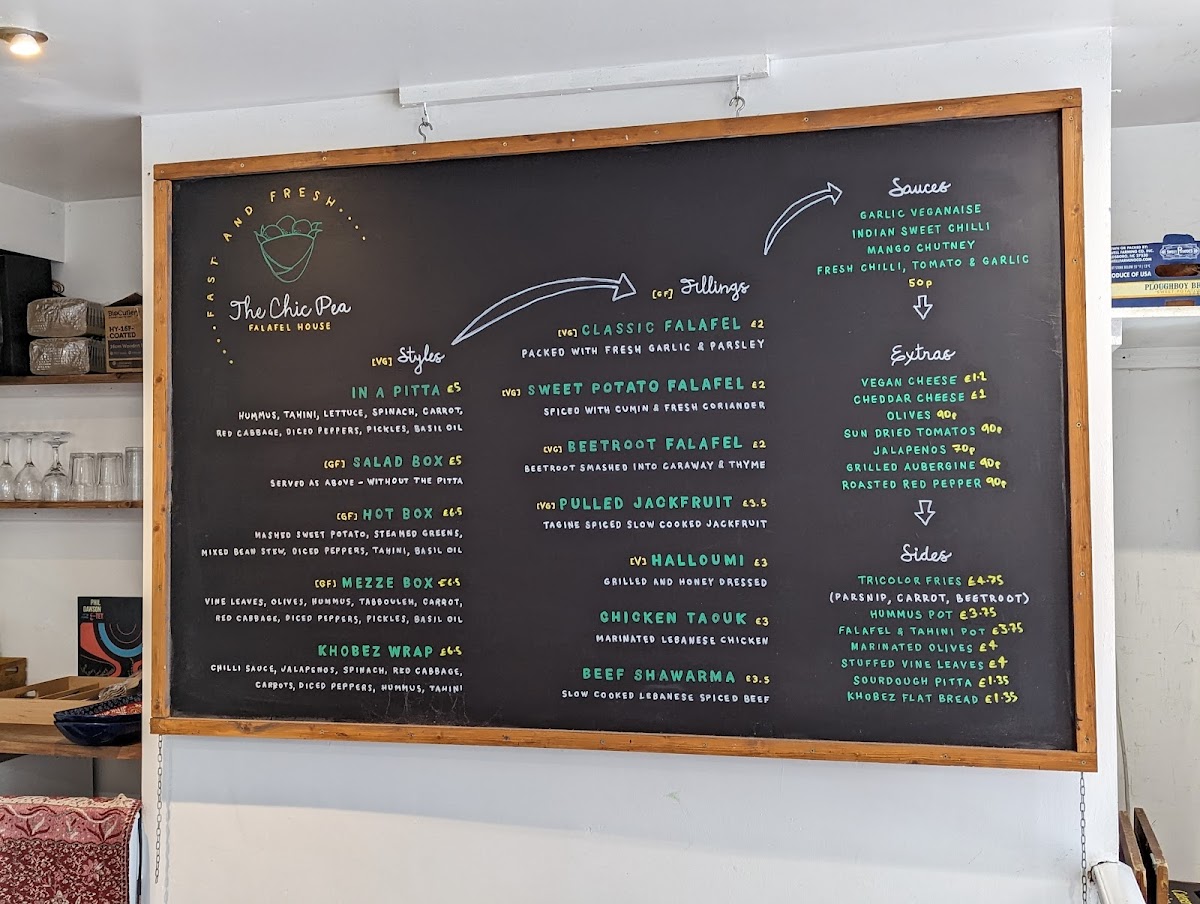 FAST AND FRESH....
The Chic Pea
FALAFEL HOUSE
[VG] Styles
IN A PITTA £5
HUMMUS, TAHINI, LETTUCE, SPINACH, CARROT,
RED CABBAGE, DICED PEPPERS, PICKLES, BASIL OIL
[GF] SALAD BOX £5
SERVED AS ABOVE - WITHOUT THE PITTA
[GF] HOT BOX £6.5
MASHED SWEET POTATO, STEAMED GREENS,
MIXED BEAN STEW, DICED PEPPERS, TAHINI, BASIL OIL
[GF] MEZZE BOX £6.5
VINE LEAVES, OLIVES, HUMMUS, TABBOULEH, CARROT,
RED CABBAGE, DICED PEPPERS, PICKLES, BASIL OIL
KHOBEZ WRAP £6.5
CHILLI SAUCE, JALAPENOS, SPINACH, RED CABBAGE,
CARROTS, DICED PEPPERS, HUMMUS, TAHINI
[GF] Fillings
[VG] CLASSIC FALAFEL £2
PACKED WITH FRESH GARLIC & PARSLEY
[VG] SWEET POTATO FALAFEL £2
SPICED WITH CUMIN & FRESH CORIANDER
[VG] BEETROOT FALAFEL £2
BEETROOT SMASHED INTO CARAWAY & THYME
[VG] PULLED JACKFRUIT £3.5
TAGINE SPICED SLOW COOKED JACKFRUIT
[V] HALLOUMI £3
GRILLED AND HONEY DRESSED
CHICKEN TAOUK £3
MARINATED LEBANESE CHICKEN
BEEF SHAWARMA £3.5
SLOW COOKED LEBANESE SPICED BEEF
Sauces
GARLIC VEGANAISE
INDIAN SWEET CHILLI
MANGO CHUTNEY
FRESH CHILLI, TOMATO & GARLIC
50p
Extras
VEGAN CHEESE £1.2
CHEDDAR CHEESE £1
OLIVES 90p
SUN DRIED TOMATOS 90p
JALAPENOS 70p
GRILLED AUBERGINE 90p
ROASTED RED PEPPER 90p
Sides
TRICOLOR FRIES £4.75
(PARSNIP, CARROT, BEETROOT)
HUMMUS POT £3.75
FALAFEL & TAHINI POT £3.75
MARINATED OLIVES £4
STUFFED VINE LEAVES £4
SOURDOUGH PITTA £1.35
KHOBEZ FLAT BREAD £1.35
HY-15F-
COATED
PHIL
DAWSON
PRODUCE OF USA
PLOUGHBOY